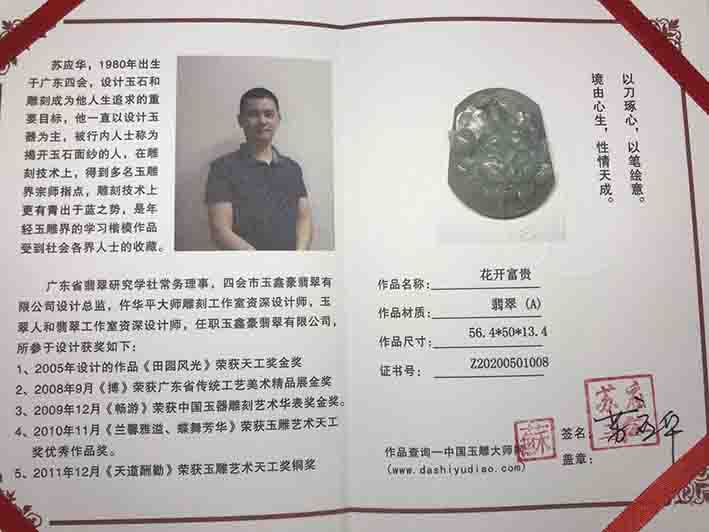 苏应华，1980年出生
于广东四会，设计玉石和
雕刻成为他人生追求的重
要目标，他一直以设计玉
器为主，被行内人士称为
揭开玉石面纱的人，在雕
刻技术上，得到多名玉雕
界宗师指点，雕刻技术上
更有青出于蓝之势，是年
轻玉雕界的学习楷模作品
受到社会各界人士的收藏。
广东省翡翠研究学社常务理事，四会市玉鑫豪翡翠有
限公司设计总监，仵华平大师雕刻工作室资深设计师，玉
翠人和翡翠工作室资深设计师，任职玉鑫豪翡翠有限公司，
所参于设计获奖如下：
1、2005年设计的作品《田园风光》荣获天工奖金奖
2、2008年9月《博》荣获广东省传统工艺美术精品展金奖
3、2009年12月《畅游》荣获中国玉器雕刻艺术华表奖金奖。
4、2010年11月《兰馨雅溢、蝶舞芳华》荣获玉雕艺术天工
奖优秀作品奖。
5、2011年12月《天道酬勤》荣获玉雕艺术天工奖铜奖
以刀琢心，以笔绘意。
境由心生，性情天成。
作品名称：花开富贵
作品材质：翡翠（A）
作品尺寸：56.4*50*13.4
证书号：Z20200501008
签名：苏应华
盖章：
蘇
作品查询—中国玉雕大师
(www.dashiyudiao.com)